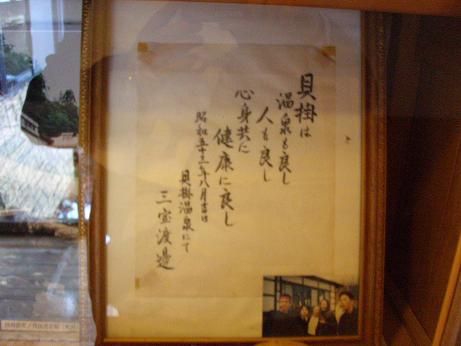 貝掛は
温泉も良し
人も良し
心身共に
健康に良し
昭和五十三年八月吉日
貝掛温泉にて
三宝渡邉